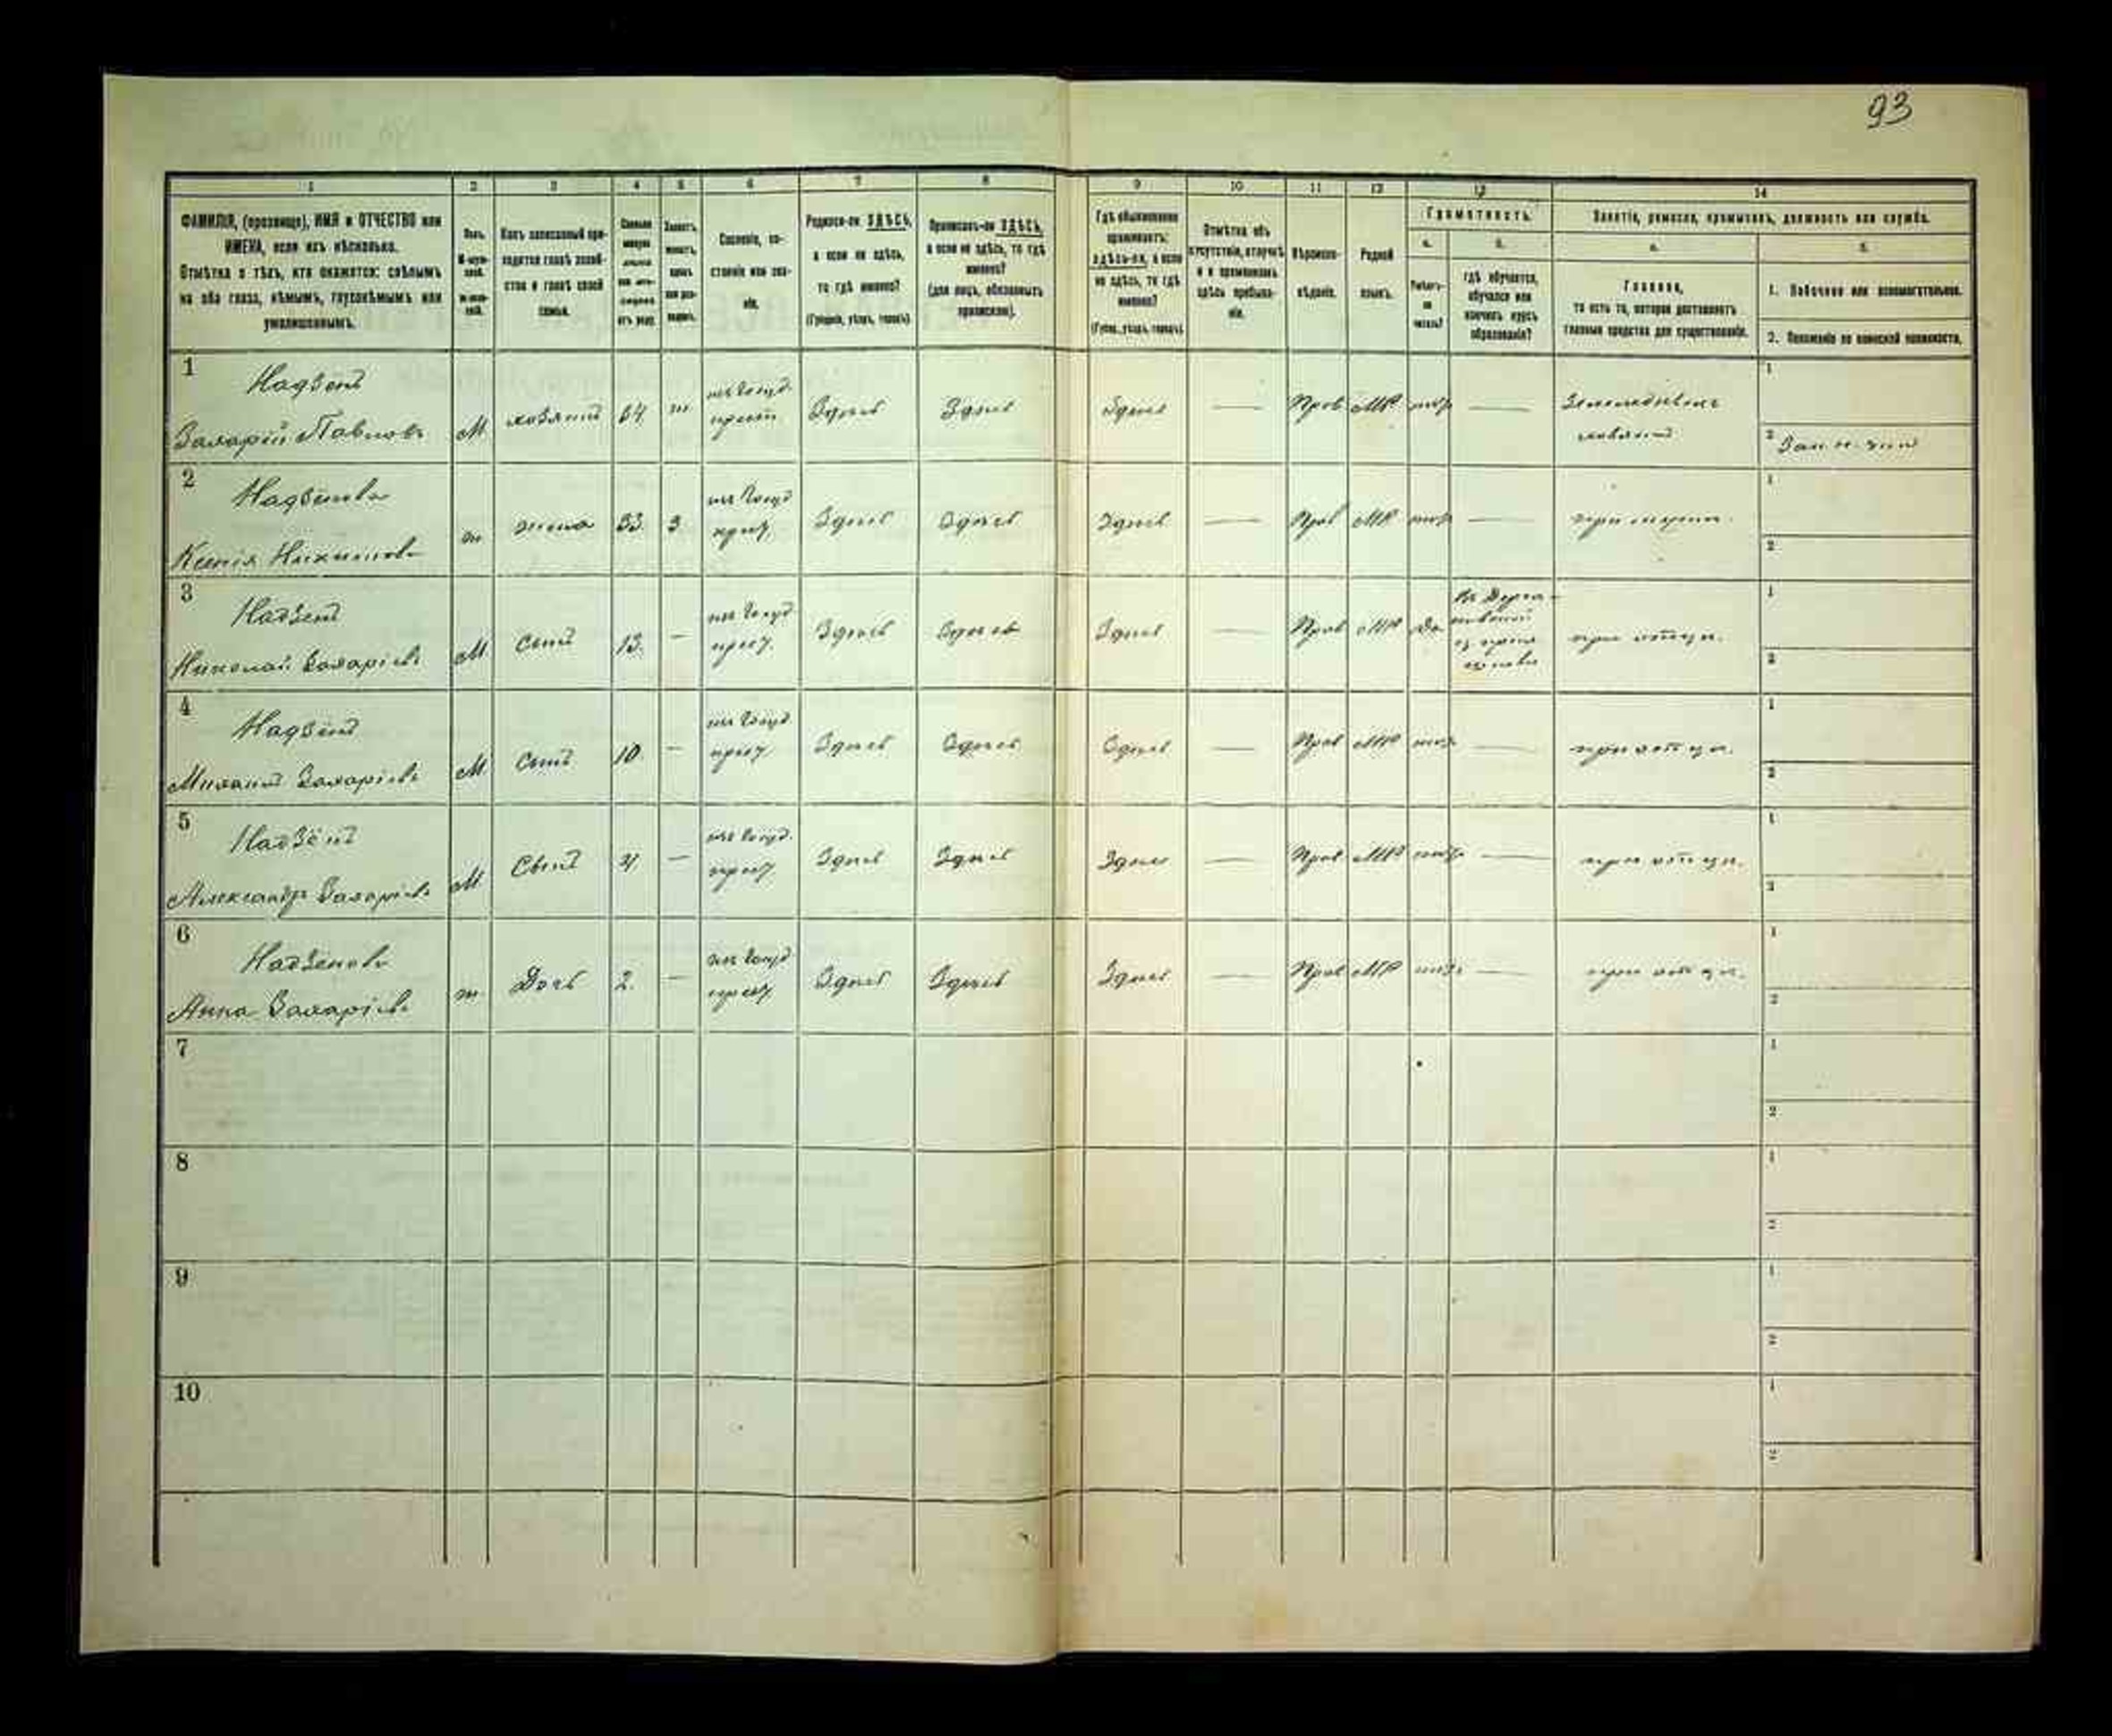 93
1
2
3
4
5
6
7
8
9
10
11
12
13
14
ФАМИЛІЯ, (прозвище), ИМЯ и ОТЧЕСТВО или
ИМЕНА, если ихъ нѣсколько.
Отмѣтка о тѣхъ, кто окажется: слѣпымъ
на оба глаза, нѣмымъ, глухонѣмымъ или
умалишеннымъ.
Полъ.
Какъ записанный при-
ходится главѣ хозяй-
ства и главѣ своей
семьи.
Сословіе, со-
стояніе или зва-
ніе.
Родился-ли ЗДѢСЬ,
а если не здѣсь,
то гдѣ именно?
(Губернія, уѣздъ, городъ)
Приписанъ-ли ЗДѢСЬ,
а если не здѣсь, то гдѣ
именно?
(для лицъ, обязанныхъ
припискою).
Гдѣ обыкновенно
проживаетъ:
здѣсь-ли, а если
не здѣсь, то гдѣ
именно?
(Губер., уѣздъ, городъ)
Отмѣтка объ
отсутствіи, отлучкѣ
и о временномъ
здѣсь пребыва-
ніи.
Вѣроиспо-
вѣданіе.
Родной
языкъ.
Грамотность.
а.
Умѣетъ-
ли
читать?
б.
гдѣ обучается,
обучался или
кончилъ курсъ
образованія?
Занятіе, ремесло, промыселъ, должность или служба.
а.
Главное,
то есть то, которое доставляетъ
главныя средства для существованія.
б.
1. Побочное или вспомогательное.
2. Положеніе по воинской повинности.
1
Надзенъ
Захарій Павловъ
М
хозяинъ
34
Здѣсь
Здѣсь
Здѣсь
—
Прав
МР
—
хозяинъ
1
2
2
Надзенова
Ксенія Никитова
жена
33
3
Здѣсь
Здѣсь
Здѣсь
—
Прав
МР
—
при мужѣ.
1
2
3
Надзенъ
Николай Захаріевъ
М
Сынъ
13.
—
Здѣсь
Здѣсь
Здѣсь
—
Прав
МР
Да
при отцѣ.
1
2
4
Надзенъ
Михаилъ Захаріевъ
М
Сынъ
10
—
Здѣсь
Здѣсь
Здѣсь
—
Прав
МР
—
при отцѣ.
1
2
5
Надзенъ
Александръ Захаріевъ
М
Сынъ
—
Здѣсь
Здѣсь
Здѣсь
—
Прав
МР
—
при отцѣ.
1
2
6
Надзенова
Анна Захаріева
Дочь
2.
—
Здѣсь
Здѣсь
Здѣсь
—
Прав
МР
—
при отцѣ.
1
2
7
1
2
8
1
2
9
1
2
10
1
2